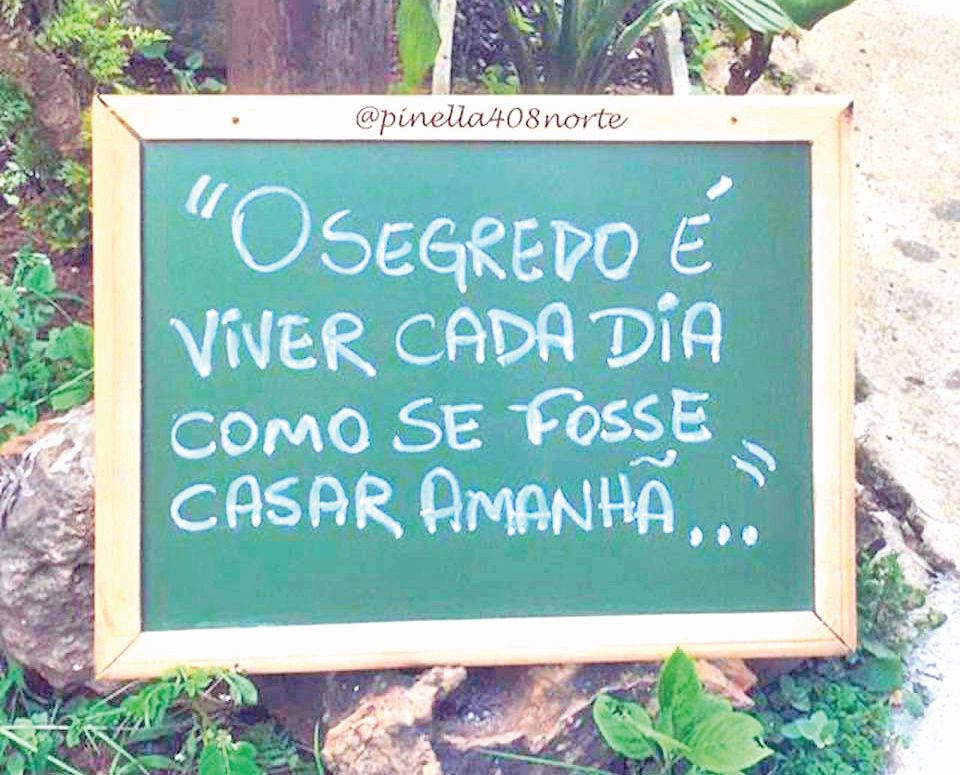 @pinella408norte
"O SEGREDO É
VIVER CADA DIA
COMO SE FOSSE
CASAR AMANHÃ..."